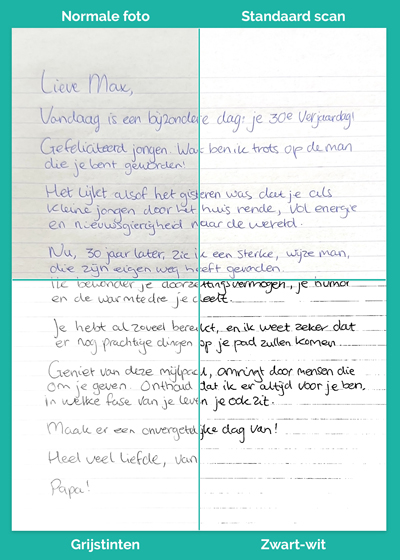 Normale foto
Standaard scan
Lieve Max,
Vandaag is een bijzondere dag: je 30e verjaardag!
Gefeliciteerd jongen. Wat ben ik trots op de man
die je bent geworden!
Het lijkt alsof het gisteren was dat je als
kleine jongen door het huis rende, vol energie
en nieuwsgierigheid naar de wereld.
Nu, 30 jaar later, zie ik een sterke, wijze man,
die zijn eigen weg heeft gevonden.
Ik bewonder je doorzettingsvermogen, je humor
en de warmte die je deelt.
Je hebt al zoveel bereikt, en ik weet zeker dat
er nog prachtige dingen op je pad zullen komen
Geniet van deze mijlpaal, omringt door mensen die
om je geven. Onthoud dat ik er altijd voor je ben,
in welke fase van je leven je ook zit.
Maak er een onvergetelijke dag van!
Heel veel liefde, van
Papa!
Grijstinten
Zwart-wit